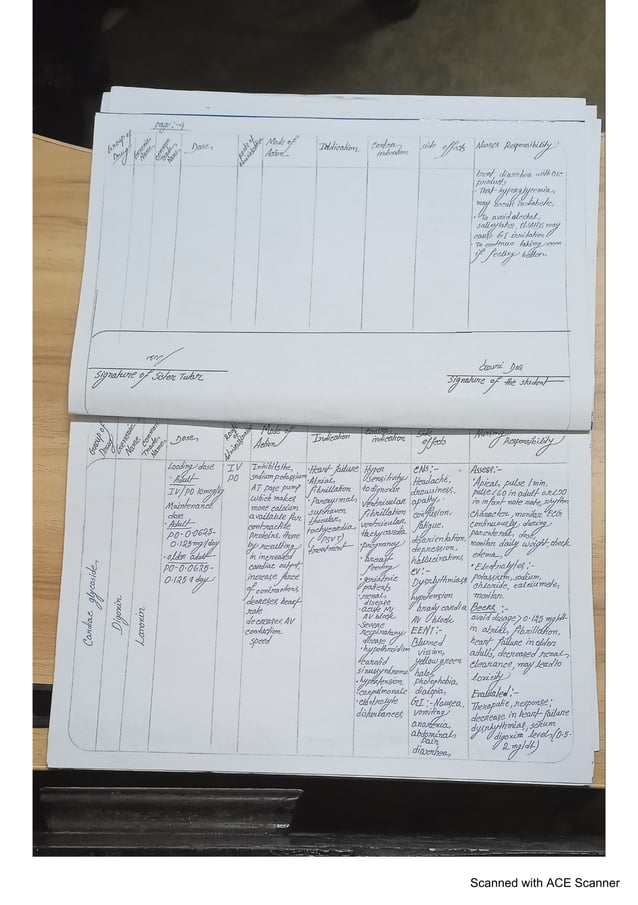 page:-4
Group of Drug
Generic Name
Common Trade Name
Dose
Route of Administration
Mode of Action
Indication
Contra indication
side effects
Nurses Responsibility
treat, diarrhea with O.T.C
product.
• That hyperglycemia,
may occur in diabetic.
• To avoid alcohol,
salicylates, NSAIDs may
cause G.I irritation
• To continue taking even
if feeling better.
Signature of Sister Tutor
Signature of the student
Group of Drug
Generic Name
Common Trade Name
Dose
Route of Administration
Mode of Action
Indication
Contra indication
Side effects
Nursing Responsibility
Cardiac glycoside
Digoxin
Lanoxin
Loading dose
• Adult
IV/PO
Maintenance
dose
• Adult
PO-0.0625-
0.125 mg/day
• older adult
PO-0.0625-
0.125 g day
IV
PO
Inhibits the,
sodium potassium
AT pase pump
which makes
more calcium
available for
contractile
proteins, there
by resulting
in increased
cardiac output
increase force
of contractions
decreases heart
rate
decreases AV
conduction
speed
• Heart failure
• Atrial
fibrillation
• Paroxysmal,
supraven
tricular,
tachycardia
(PSVT)
treatment
Hyper
sensitivity
to digoxin
ventricular
fibrillation
ventricular
tachycardia
• pregnancy
• breast
feeding
• geriatric
patients
• renal,
disease
• acute MI
AV block
• severe
respiratory
disease
• hypothyroidism
• carotid
sinus syndrome
• hypertension
• corpulmonale
• electrolyte
disturbances
CNS:-
Headache,
drowsiness,
apathy,
confusion,
fatigue,
disorientation,
depression,
hallucinations
CV:-
Dysrhythmias,
hypotension
bradycardia
AV block
EENT:-
Blurred
vission,
yellow green
halos,
photophobia,
diplopia,
GI:- Nausea,
vomiting
anorexia,
abdominal
pain,
diarrhea,
Assess:-
• Apical, pulse 1 min,
pulse <60 in adult or <90
in infant note rate, rhythm
character, monitor ECG
continuously, during
parenteral, dose,
monitor daily weight check
edema,
• Electrolytes:-
potassium, sodium,
chloride, calcium etc,
monitor
Beers:-
avoid dosage >0.125 mg/dt
in atrial, fibrillation,
heart failure in older
adults, decreased renal,
clearance, may lead to
toxicity
Evaluated:-
Theraputic, response;
decrease in heart failure
dysrhythmias, serum
digoxin levels (0.5-
2 mg/dt)
Scanned with ACE Scanner